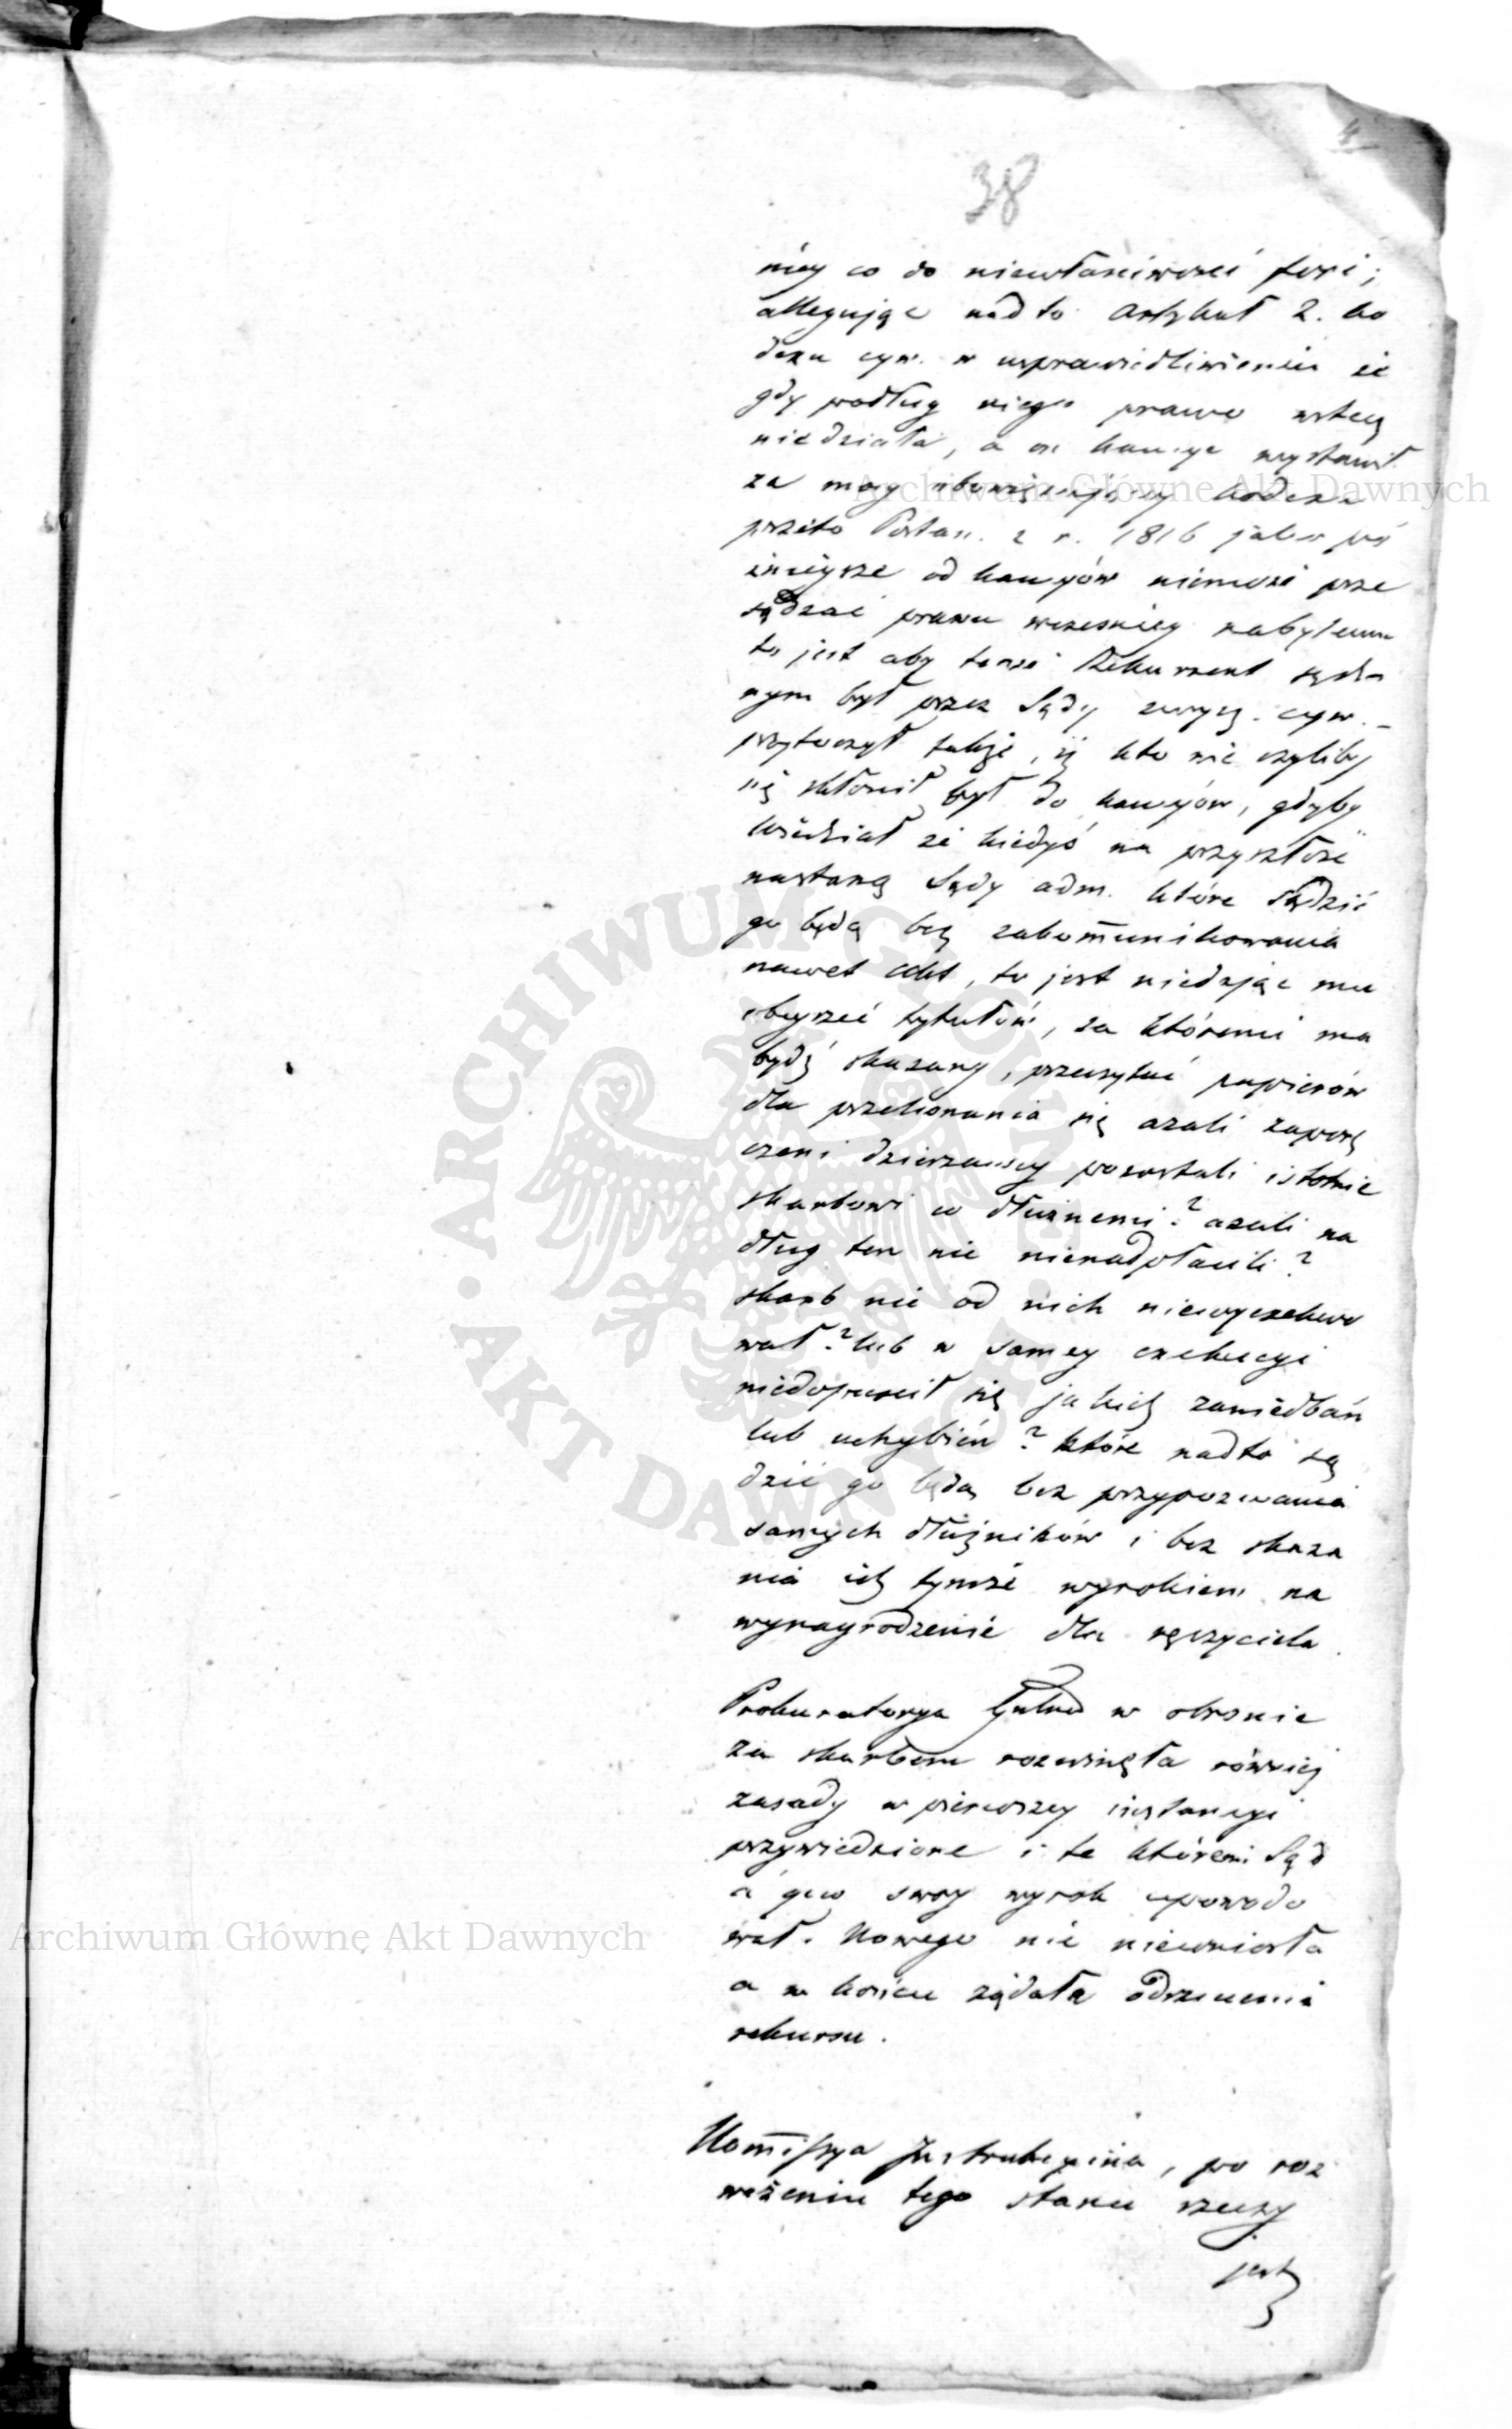 38
niey co do niewłaściwości fori;
allegując nadto Artykuł 2. ko
dexu cyw. w usprawiedliwieniu że
gdy podług niego prawo wstecz
niedziała, a on kaucye wystawił
za mocy obowiązującey kodexu
przeto Postan. z r. 1816 jako pó
źnieysze od kaucyów niemoże prze
sądzać prawu wcześniey nabytemu
to jest aby tenże Rekurrent sądzo
nym był przez Sądy zwycz. cyw. –
przytoczył także, iż kto nie czyliby
się skłonił był do kaucyów, gdyby
wiedział że kiedyś na przyszłość
nastaną Sądy adm. które sądzić
go będą bez zakomunikowania
nawet Akt, to jest niedając mu
obeyrzeć tytułów, za któremi ma
bydź skazany, przeczytać papierów
dla przekonania się azali zaporę
czeni dzierzawcy pozostali istotnie
skarbowi co dłużnemi? azali na
dług ten nic nienadpłacili?
skarb nic od nich niewyexekwo
wał? lub w samey exekucyi
niedopuścił się jakich zaniedbań
lub uchybień? które nadto są
dzić go będą bez przypozwania
samych dłużników i bez skaza
nia ich tymże wyrokiem na
wynagrodzenie dla ręczyciela.
Prokuratorya w obronie
za skarbem rozwinęła również
zasady w pierwszey instancyi
przywiedzione i te któremi Sąd
a quo swoy wyrok upowodo
wał. Nowego nic niewniosła
a w końcu żądała odrzucenia
rekursu.
Kommissya Instrukcyina, po roz
ważeniu tego stanu rzeczy
jest
Archiwum Główne Akt Dawnych
Archiwum Główne Akt Dawnych
ARCHIWUM GŁÓWNE • AKT DAWNYCH •